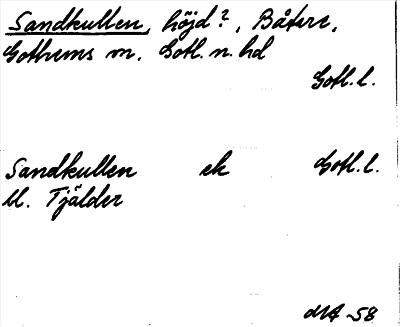 Sandkullen, höjd?, Båtsre,
Gothems sn. Gotl. n. hd
Gotl. l.
Sandkullen ek Gotl. l.
bl. Tjälder
-58